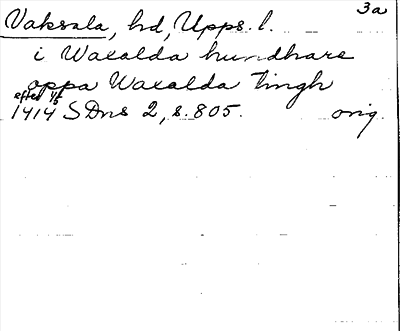 3a
Vaksala, hd, Upps. l.
i Waxalda hundhare
oppa Waxalda tingh
efter 1/5
1414 SDns 2, s. 805. orig.